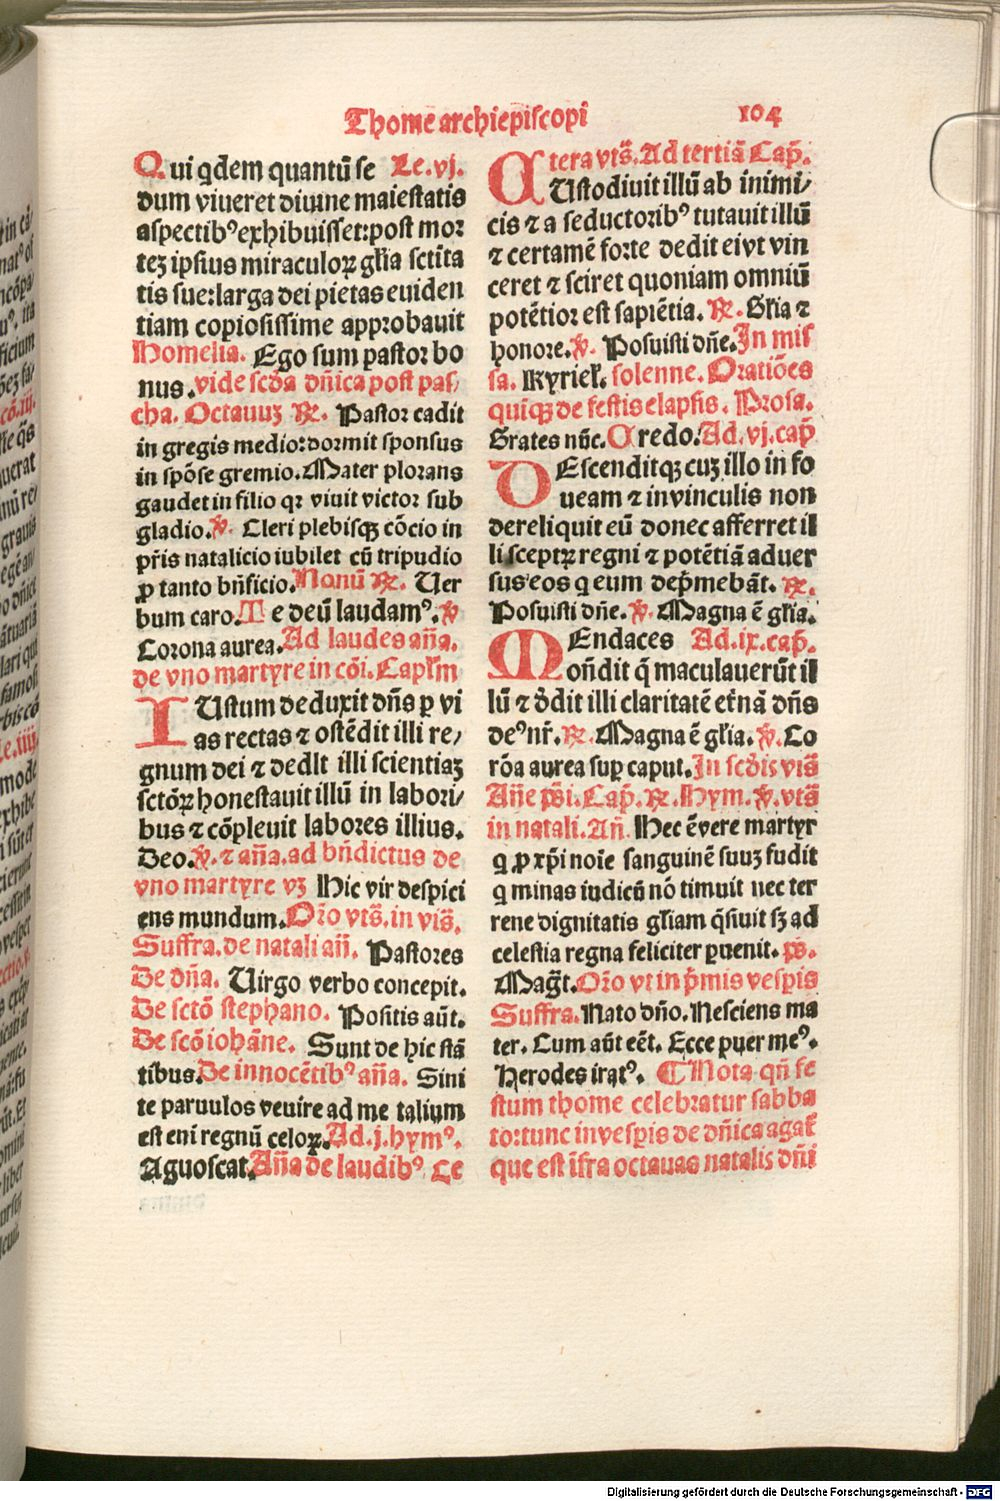 Thome archiepiscopi 104
Qui qdem quantū se Le.vj.
dum viueret diuine maiestatis
aspectibꝰ exhibuisset: post mor
teꝫ ipsius miraculoꝝ glīa sctita
tis sue: larga dei pietas euiden
tiam copiosissime approbauit
Homelia. Ego sum pastor bo
nus. vide scd̄a dn̄ica post pas/
cha. Octauuꝫ ℟. Pastor cadit
in gregis medio: dormit sponsus
in spōse gremio. Mater plorans
gaudet in filio qꝛ viuit victor sub
gladio. ℣. Cleri plebisqꝫ cōcio in
pr̄is natalicio iubilet cū tripudio
ꝓ tanto bn̄ficio. Nonū ℟. Uer
bum caro. Te deū laudamꝰ. ℣
Corona aurea. Ad laudes an̄a.
de vno martyre in cōi. Caplm̄
IUstum deduxit dn̄s ꝑ vi
as rectas ⁊ ostēdit illi re/
gnum dei ⁊ dedIt illi scientiaꝫ
sctōꝝ honestauit illū in labori/
bus ⁊ cōpleuit labores illius.
Deo. ℣. ⁊ an̄a. ad bn̄dictus de
vno martyre vꝫ Hic vir despici
ens mundum. Or̄o vts̄. in vis̄.
Suffra. de natali an̄. Pastores
De dn̄a. Uirgo verbo concepit.
De sctō stephano. Positis aūt.
De scō iohāne. Sunt de hic stā
tibus. De innocētibꝰ an̄a. Sini
te paruulos venire ad me talium
est eni regnū celoꝝ. Ad .j. hymꝰ.
Agnoscat. An̄a de laudibꝰ Le
tera vts̄. Ad tertiā Cap̄.
CUstodiuit illū ab inimi/
cis ⁊ a seductoribꝰ tutauit illū
⁊ certamē forte dedit ei vt vin
ceret ⁊ sciret quoniam omniū
potētior est sapiētia. ℟. Glīa ⁊
honore. ℣. Posuisti dn̄e. In mis
sa. Kyriel̄. solenne. Oratiōes
quiqꝫ de festis elapsis. Prosa.
Grates nūc. Credo. Ad .vj. cap̄
DEscenditqꝫ cuꝫ illo in fo
ueam ⁊ in vinculis non
dereliquit eū donec afferret il
li sceptꝝ regni ⁊ potētiā aduer
sus eos q eum dep̄mebāt. ℟.
Posuisti dn̄e. ℣. Magna ē glīa.
MEndaces Ad .ix. cap̄.
on̄dit q̄ maculauerūt il
lū ⁊ d̄dit illi claritatē et̄nā dn̄s
deꝰ nr̄. ℟. Magna ē glīa. ℣. Co
rōa aurea sup̄ caput. In scd̄is vis̄
An̄e ps̄i. Cap̄. ℟. Hym. ℣. vts̄
in natali. An̄. Hec ē vere martyr
q ꝓ xp̄i noīe sanguinē suuꝫ fudit
q minas iudicū nō timuit nec ter
rene dignitatis glīam q̄siuit sꝫ ad
celestia regna feliciter ꝑuenit. ps̄.
Maḡt. Or̄o vt in p̄mis vesp̄is
Suffra. Nato dn̄o. Nesciens ma
ter. Cum aūt eēt. Ecce puer meꝰ.
Herodes iratꝰ. ¶ Nota qn̄ fe
stum thome celebratur sabba
to: tunc in vesp̄is de dn̄ica agat̄
que est īfra octauas natalis dn̄i
Digitalisierung gefördert durch die Deutsche Forschungsgemeinschaft - DFG